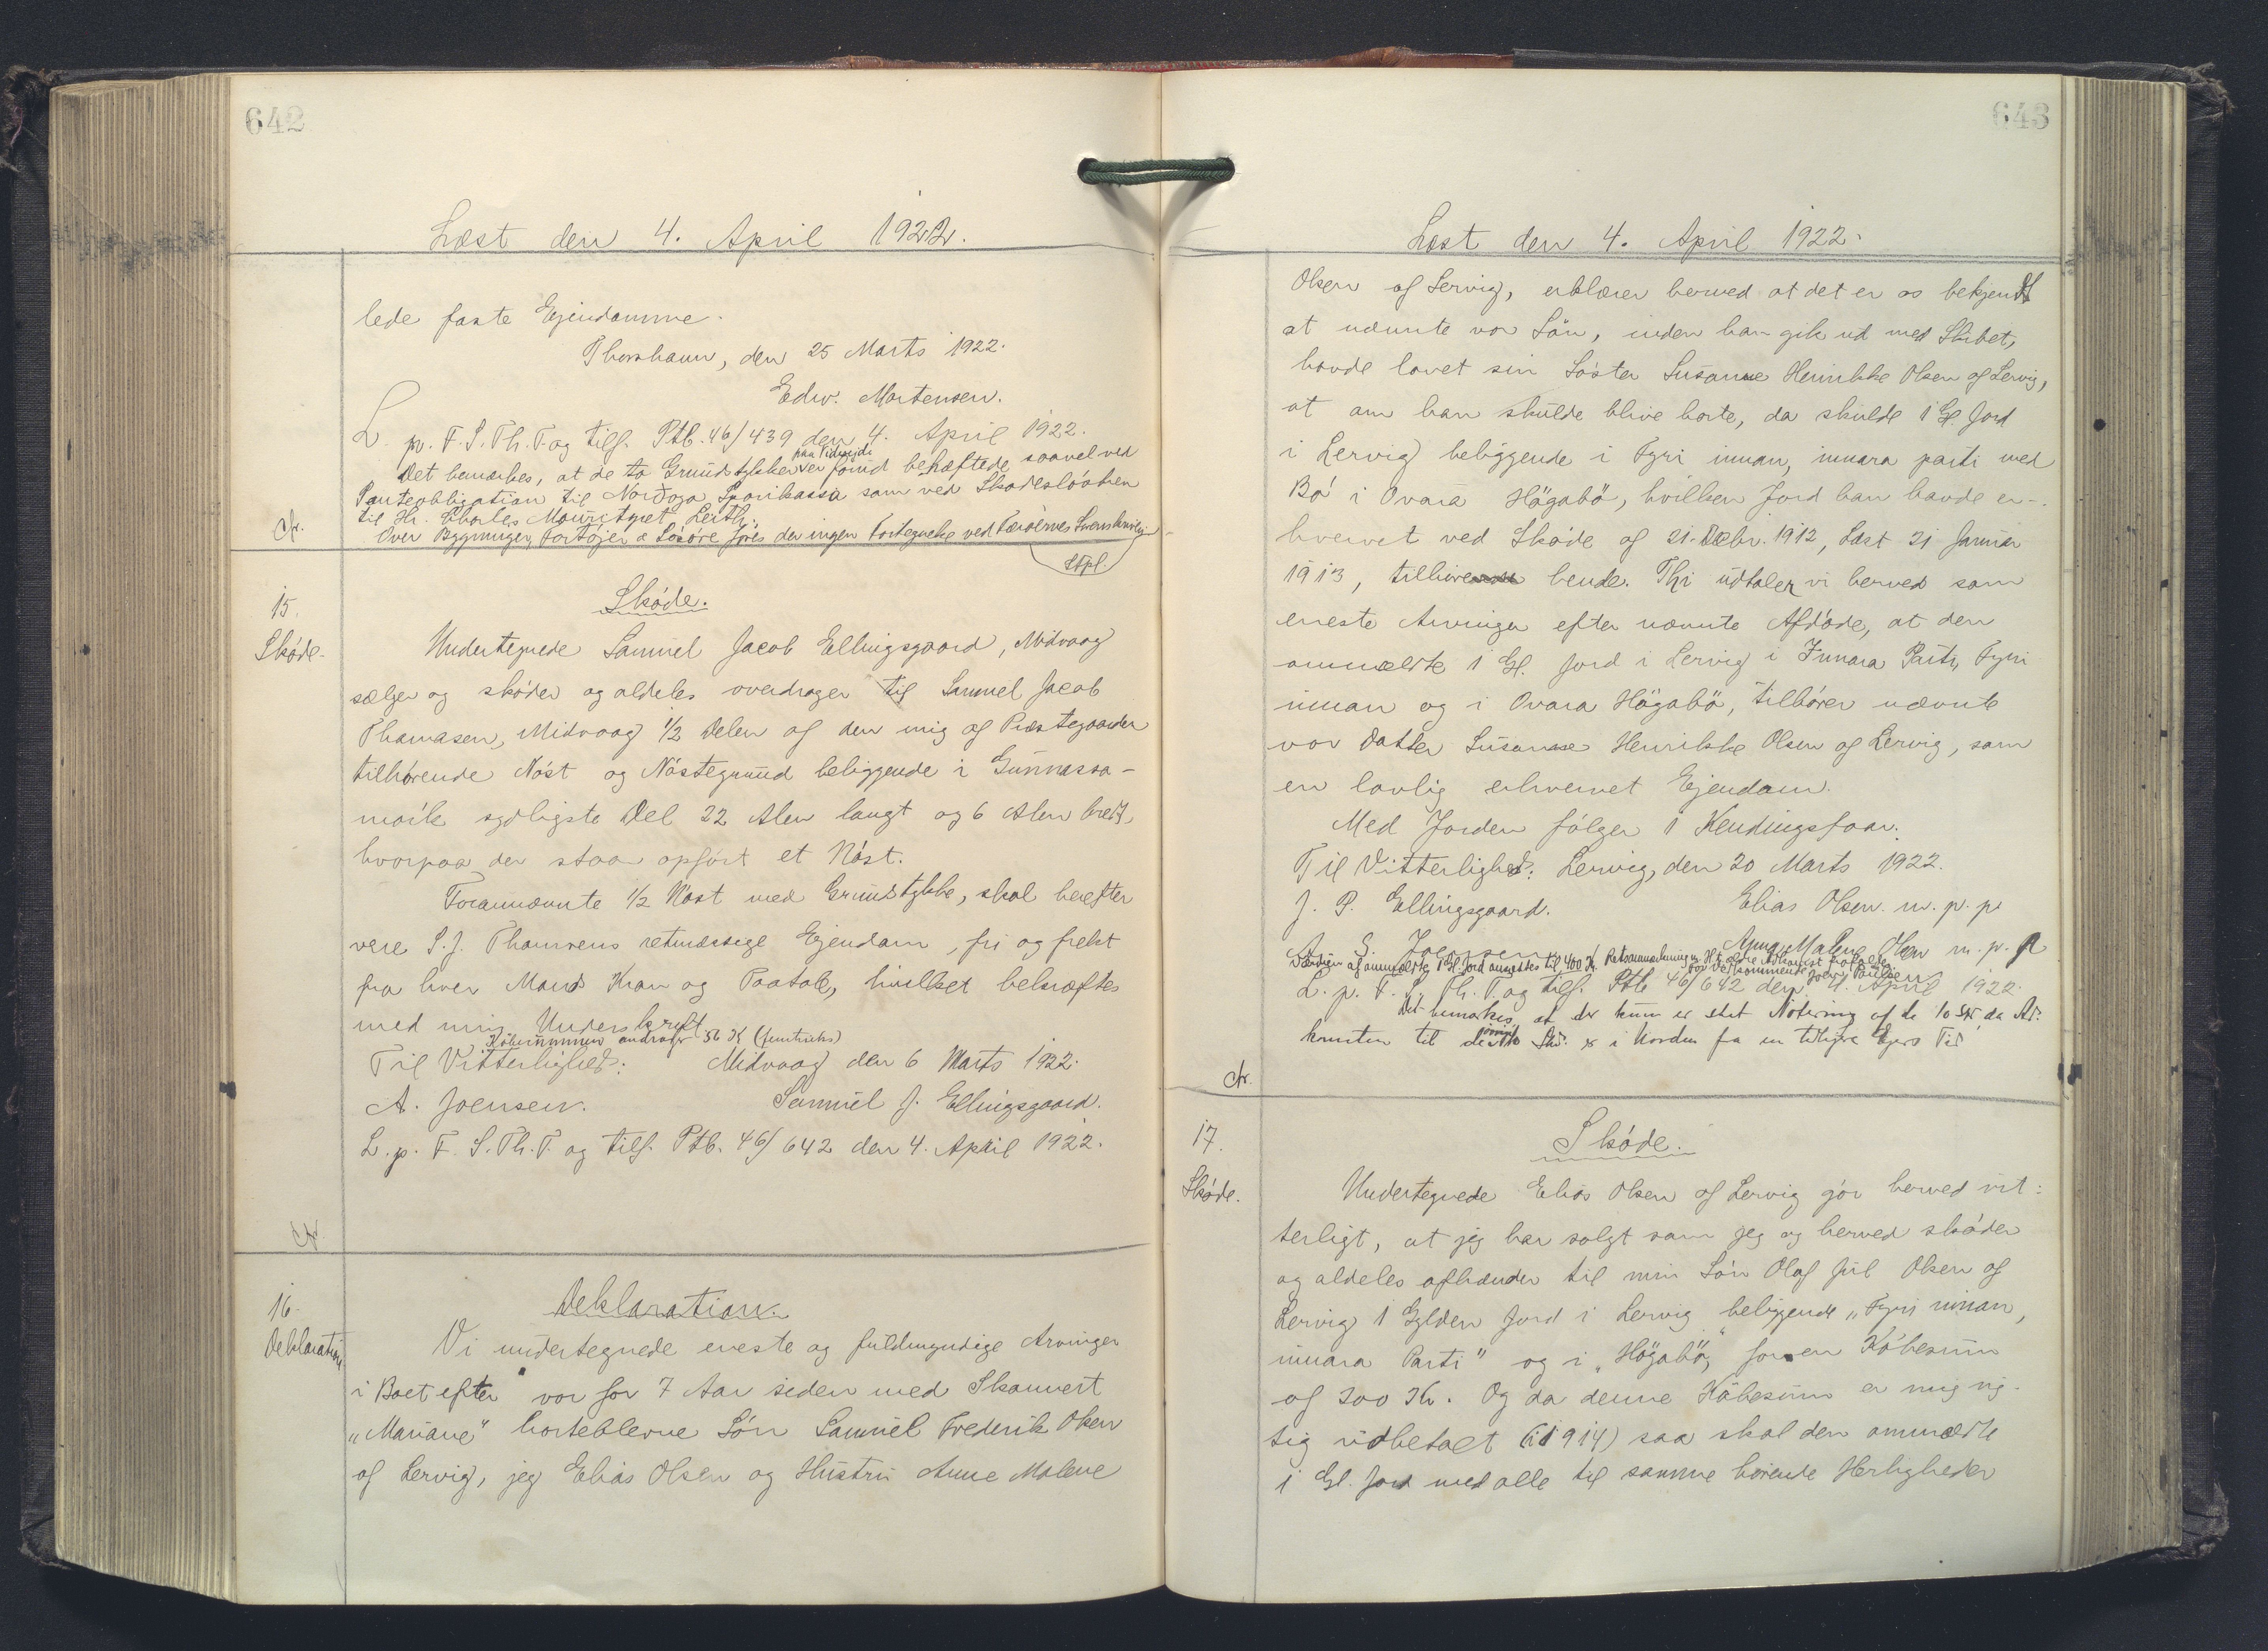 642
Læst den 4. April 1922.
lede faste Ejendomme.
Thorshavn, den 25 Marts 1922.
Edw. Mortensen.
L. p. F. S. Th. T. og tilf. Ptb. 46/439 den 4. April 1922.
Det bemærkes, at de to Grundstykker paa Tvöroyri er forud behæftede saavel ved
Panteobligation til Norðoya Sparikassa som ved Skadesløsbrev
til Hr. Charles Mouritzen, Leith.
Over Bygninger, Fartøjer & Løsøre føres der ingen Fortegnelse ved Færøernes Sorenskriveri
Stpl.
15.
Skøde.
Skøde.
Undertegnede Samuel Jacob Ellingsgaard, Midvaag
sælger og skøder og aldeles overdrager til Samuel Jacob
Thomasen, Midvaag 1/2 Delen af den mig af Præstegaarden
tilhørende Nøst og Nøstegrund beliggende i
sydligste Del 22 Alen langt og 6 Alen bredt,
hvorpaa der staar opført et Nøst.
Forannævnte 1/2 Nøst med Grundstykke, skal herefter
være S. J. Thomsens retmæssige Ejendom, fri og frelst
fra hver Mands Krav og Paatale, hvilket bekræftes
med min Underskrift.
Købesummen andrager 50 Kr (femti kr)
Til Vitterlighed: Midvaag den 6 Marts 1922.
A. Joensen. Samuel J. Ellingsgaard.
L. p. F. S. Th. T. og tilf. Ptb. 46/642 den 4. April 1922.
16.
Deklaration
Deklaration.
Vi undertegnede eneste og fuldmyndige Arvinger
i Boet efter vor for 7 Aar siden med Skonnert
"Mariane" borteblevne Søn Samuel Frederik Olsen
af Lervig, jeg Elias Olsen og Hustru Anne Malene
643
Læst den 4. April 1922.
Olsen af Lervig, erklærer herved at det er os bekjendt
at nævnte vor Søn, inden han gik ud med Skibet,
havde lovet sin Søster Susanne Henrikke Olsen af Lervig,
at om han skulde blive borte, da skulde 1 Gl. Jord
i Lervig beliggende i Fyri innan, innara parti med
Bø i Ovara Høgabø, hvilken Jord han havde er-
hvervet ved Skøde af 21. Decbr. 1912, Læst 21 Januar
1913, tilhøre hende. Thi udtaler vi herved som
eneste Arvinger efter nævnte Afdøde, at den
ommeldte 1 Gl. Jord i Lervig i Innara Parti, Fyri
innan og i Ovara Høgabø, tilhører nævnte
vor Datter Susanne Henrikke Olsen af Lervig, som
en lovlig erhvervet Ejendom.
Med Jorden følger 1 Kendingsfaar.
Til Vitterlighed: Lervig, den 20 Marts 1922.
J. P. Ellingsgaard. Elias Olsen m. p. p.
A. S. Joensen Anna Malene Olsen m. p. p.
Værdien af ommeldte 1 Gl. Jord ansættes til 400 Kr.
L. p. F. S. Th. T. og tilf. Ptb 46/642 den 4. April 1922.
Det bemærkes, at der kun er sket Notering af de 10 Sk. da Ad-
komsten til de øvrige 10 Sk. er i Uorden fra en tidligere Ejers Tid
17.
Skøde.
Skøde.
Undertegnede Elias Olsen af Lervig gør herved vit-
terligt, at jeg har solgt som jeg og herved skøder
og aldeles afhænder til min Søn Olaf Jul Olsen af
Lervig 1 Gylden Jord i Lervig beliggende "Fyri innan,
innara Parti" og i "Høgabø," for en Købesum
af 300 Kr. Og da denne Købesum er mig rig-
tig udbetalt (i 1914) saa skal den ommeldte
1 Gl. Jord med alle til samme hørende Herligheder